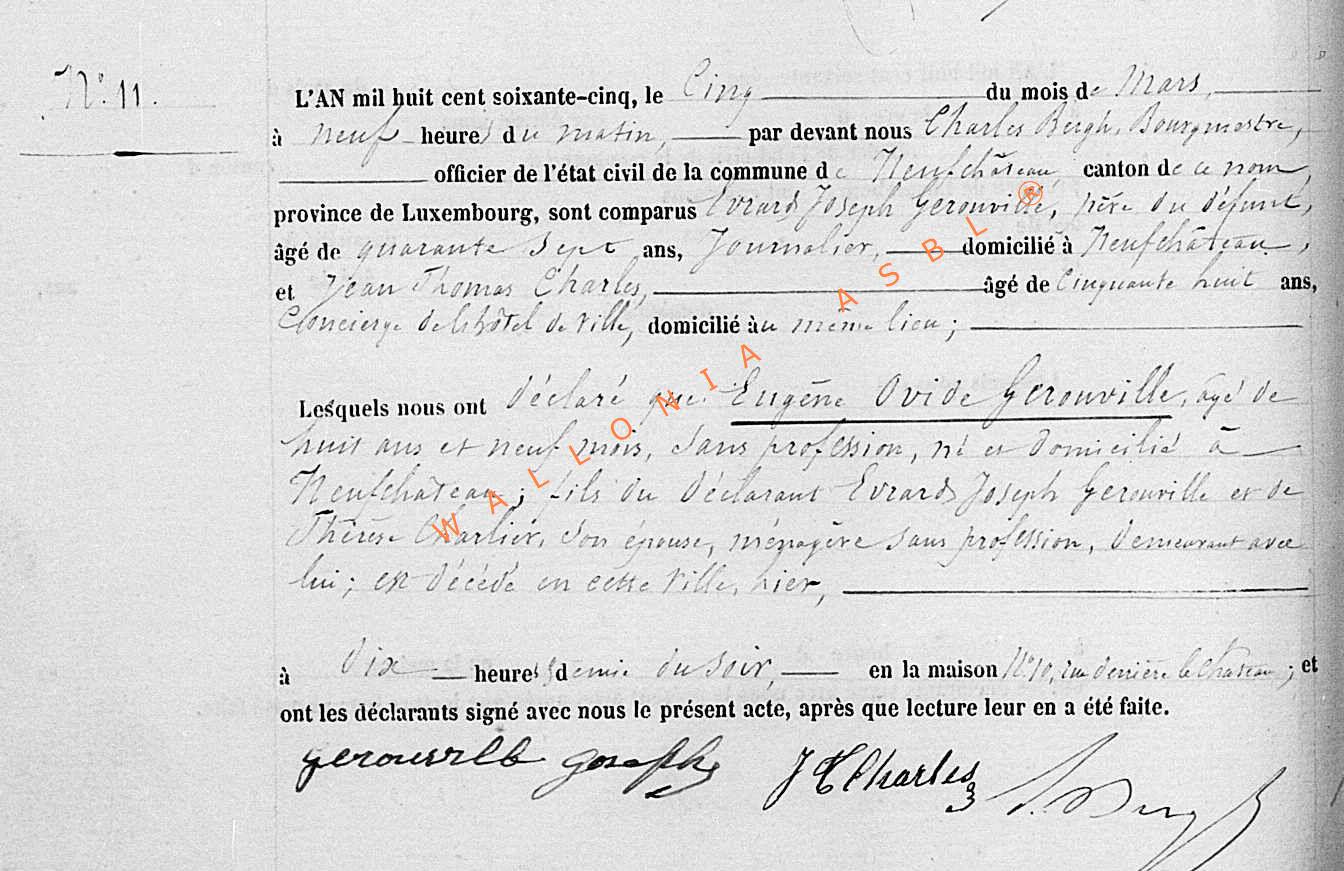 N° 11.
L'AN mil huit cent soixante-cinq, le Cinq du mois de Mars,
à neuf heures du matin, par devant nous Charles Bergh, Bourgmestre,
officier de l'état civil de la commune de Neufchâteau canton de ce nom,
province de Luxembourg, sont comparus Evrard Joseph Gerouville, père du défunt,
âgé de quarante sept ans, Journalier, domicilié à Neufchâteau,
et Jean Thomas Charles, âgé de Cinquante huit ans,
Concierge de l'hôtel de Ville, domicilié au même lieu;
Lesquels nous ont déclaré que Eugène Ovide Gerouville, agé de
huit ans et neuf mois, sans profession, né et domicilié à
Neufchâteau; fils du déclarant Evrard Joseph Gerouville et de
Thérèse Charlier, son épouse, ménagère sans profession, demeurant avec
lui; est décédé en cette Ville, hier,
à Dix heures demie du soir, en la maison N° 10, rue derrière le Chateau; et
ont les déclarants signé avec nous le présent acte, après que lecture leur en a été faite.
gerouville joseph J T Charles
WALLONIA ASBL ®